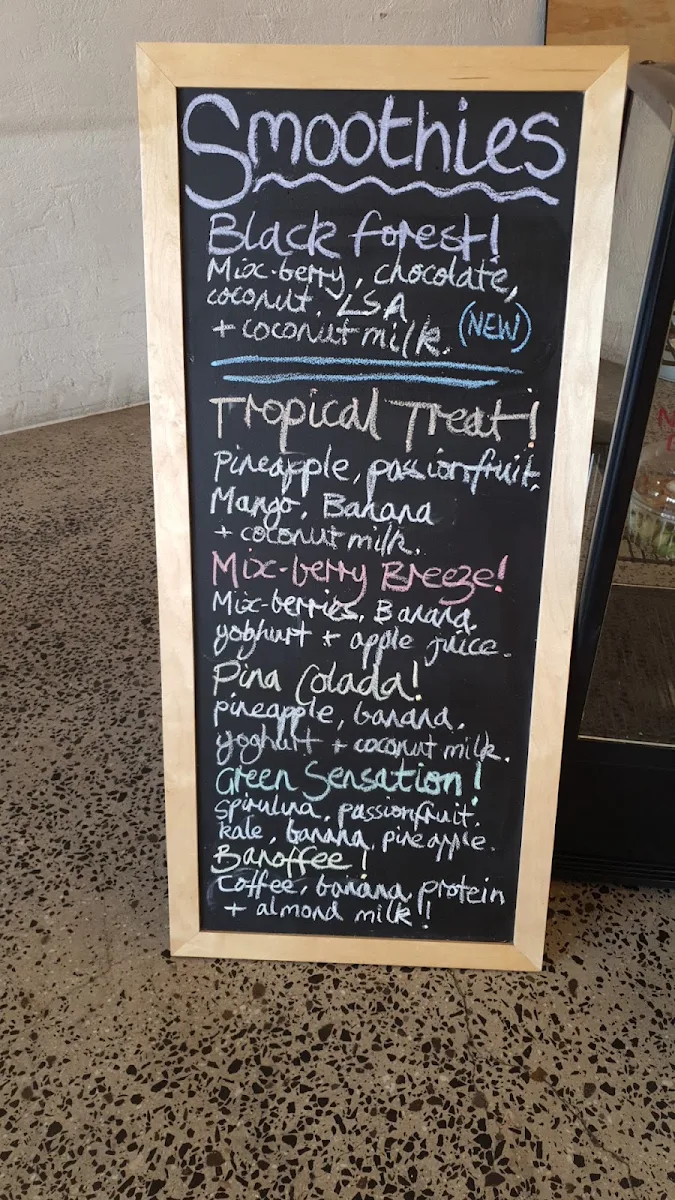 Smoothies
Black forest!
Mix-berry, chocolate,
coconut, LSA
+ coconut milk. (NEW)
Tropical Treat!
Pineapple, passionfruit,
Mango, Banana
+ coconut milk.
Mix-berry Breeze!
Mix-berries, Banana,
yoghurt + apple juice.
Pina Colada!
pineapple, banana,
yoghurt + coconut milk.
Green Sensation!
spirulina, passionfruit,
kale, banana, pineapple.
Banoffee!
Coffee, banana, protein
+ almond milk!!